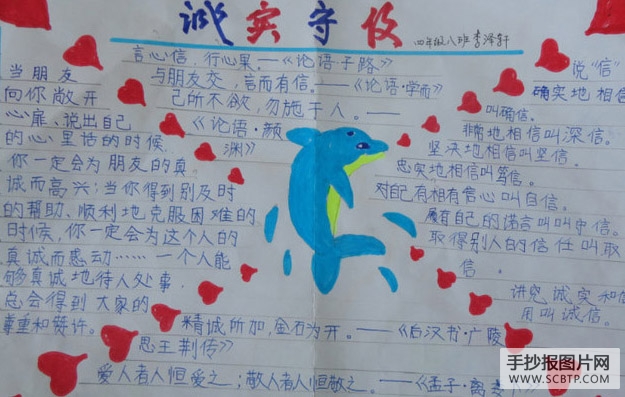 诚实守信
四年级八班李泽轩
言必信,行必果。——《论语·子路》
与朋友交,言而有信。——《论语·学而》
己所不欲,勿施于人。——
《论语·颜
渊》
当朋友
向你敞开
心扉、说出自己
的心里话的时候
你一定会为朋友的真
诚而高兴;当你得到别及时
的帮助、顺利地克服困难的
时候,你一定会为这个人的
真诚而感动……一个人能
够真诚地待人处事,
总会得到大家的
尊重和赞许。
说“信”
确实地相信
叫确信。
非常地相信叫深信。
坚决地相信叫坚信。
忠实地相信叫笃信。
对自己有相有信心叫自信。
履有自己的诺言叫叫守信。
取得别人的信任叫取
信。
讲究诚实和信
用叫诚信。
精诚所加,金石为开。——《后汉书·广陵
思王荆传》
爱人者人恒爱之;敬人者人恒敬之。——《孟子·离娄
手抄报图片网
WWW.SCBTP.COM